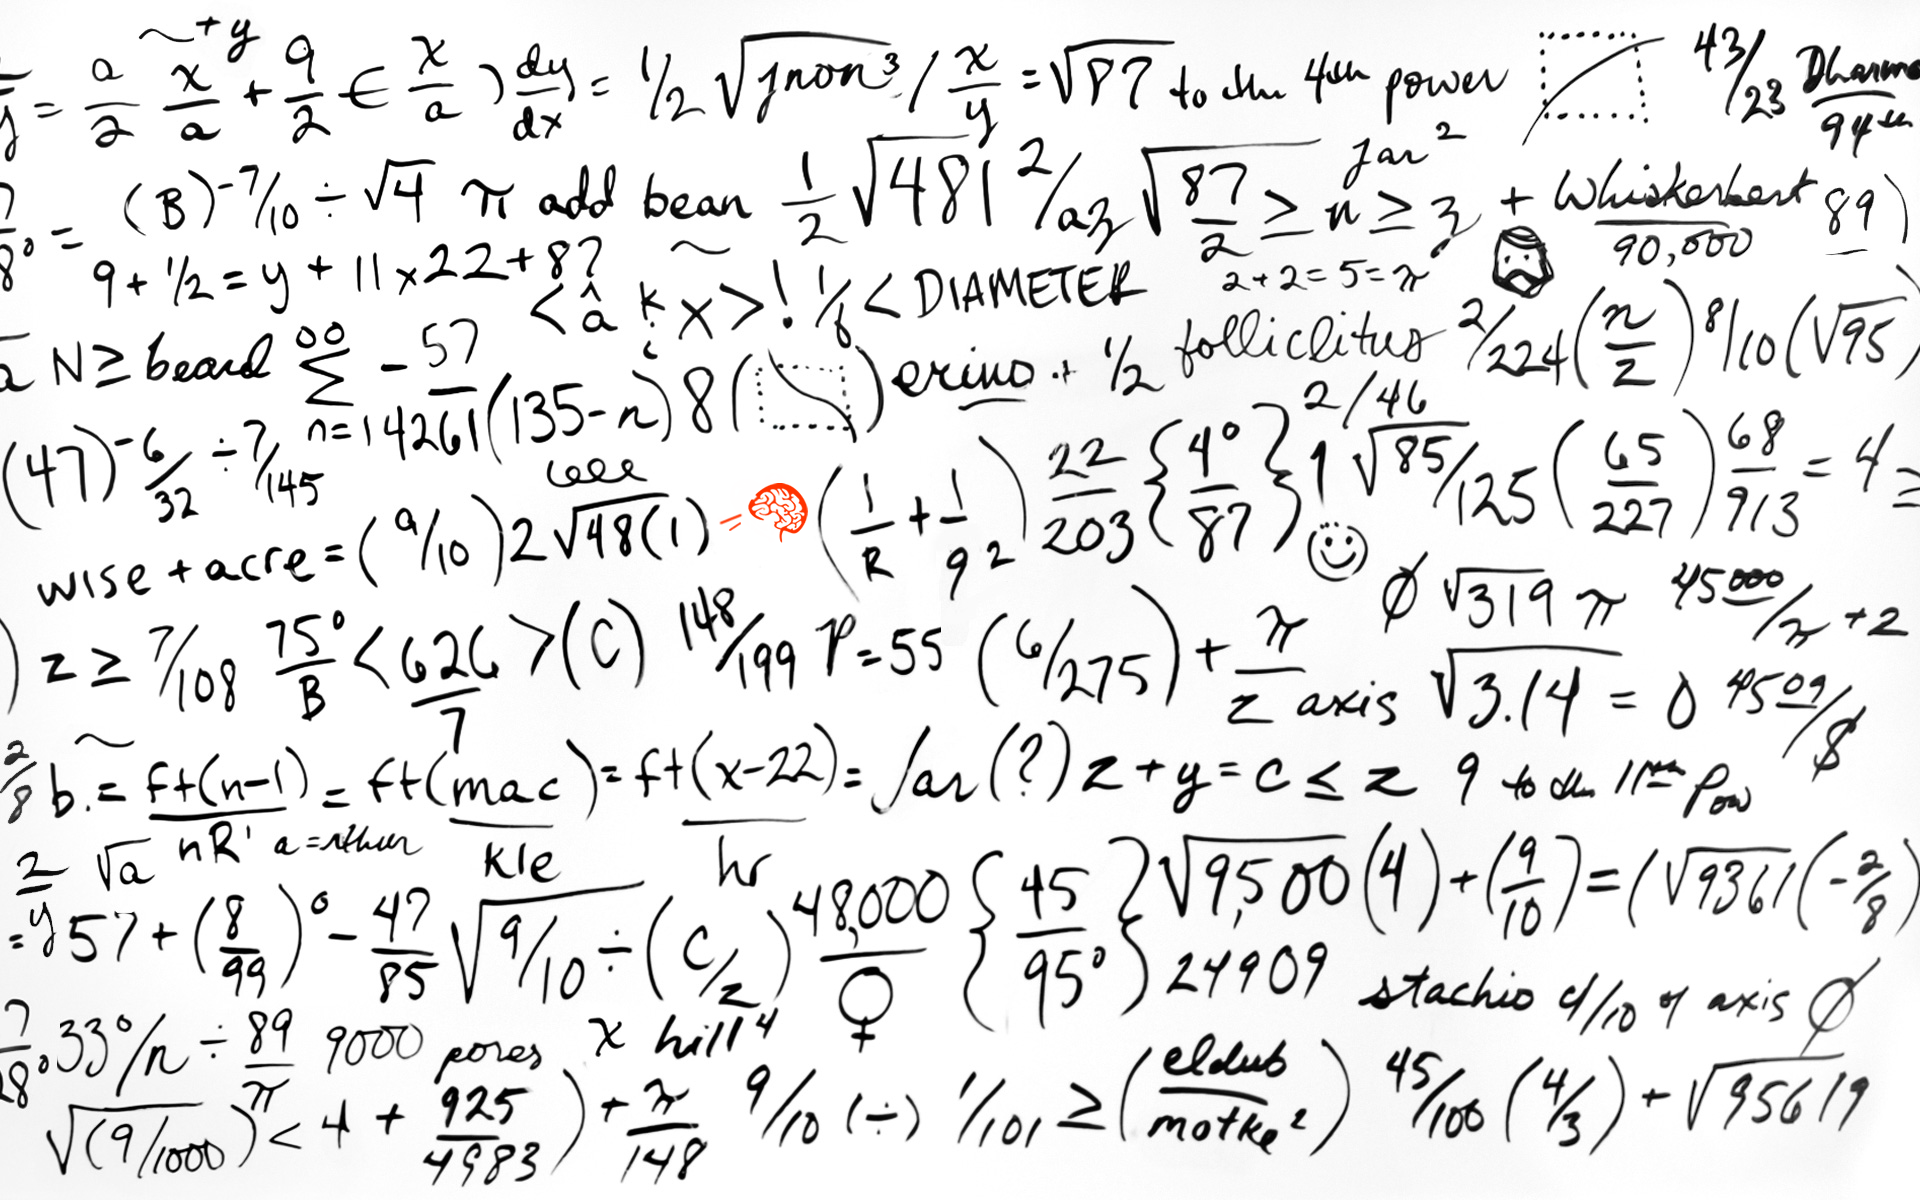 ~ + y
/y = a/2 x/a + 9/2 ∈ x/a ) dy/dx = 1/2 √jnon³ / x/y = √87 to the 4th power 43/23 Dharma/94th
7/8° = (B)^-7/10 ÷ √4 π add bean 1/2 √481 2/az √87/2 ≥ n ≥ z jar² + Whiskerbert/90,000 89 )
9 + 1/2 = y + 11 x 22 + 8? < â k x > ! 1/6 < DIAMETER 2+2=5=π
a N ≥ beard ∞ Σ n=14261 -57 (135-n) 8 ( ) erino + 1/2 folliclitus 2/224 (n/z) 8/10 (√95
(47)^-6/32 ÷ 7/145
wise + acre = (9/10) 2 √48(1) (1/R + 1/9 2) 22/203 {4°/87} 2/46 1 √85/125 (65/227) 68/913 = 4 ≥
) z ≥ 7/108 75°/B < 626/7 > (C) 148/199 P = 55 (6/275) + π/z axis ∅ √319 π 45000/π + 2
√3.14 = 0 4509/$
2/8 b. = ft(n-1)/nR' = ft(mac)/kle = ft(x-22)/hr = far (?) z + y = c ≤ z 9 to the 11th pow
2/y √a a =
= 57 + (8/99)° - 47/85 √9/10 ÷ (C/z) 48,000/♀ {45/95°} √9,500 (4) + (9/10) = (√9361 (-2/8)
24909 stachio 4/10 of axis ∅
7/28° .33°/n ÷ 89/π 9000 pores x hill⁴
√(9/1000) < 4 + 925/4983 ) + π/148 9/10 (÷) 1/101 ≥ (eldub/motke²) 45/100 (4/3) + √95619